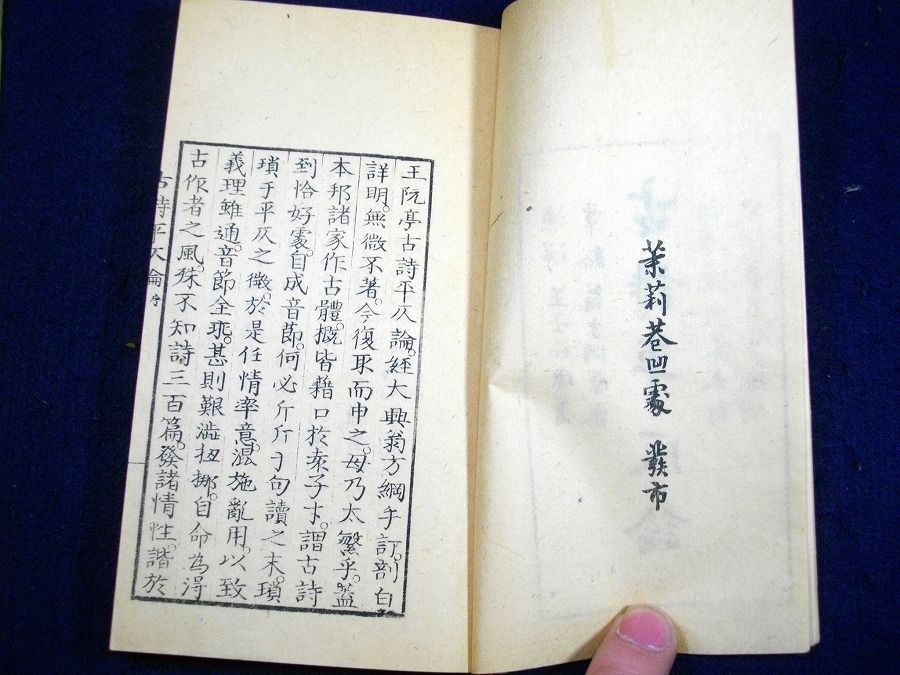 茉莉巷凹處 發市
王阮亭古詩平仄論。經大興翁方綱手訂。剖白
詳明。無微不著。今復取而申之。毋乃太繁乎。蓋
本邦諸家作古體。概皆藉口於袁子才。謂古詩
到恰好處。自成音節。何必斤斤于句讀之末。瑣
瑣于平仄之微。於是任情率意。混施亂用。以致
義理雖通。音節全乖。甚則艱澁拗挪。自命為得
古作者之風。殊不知詩三百篇。發諸情性。諧於
古詩平仄論 序